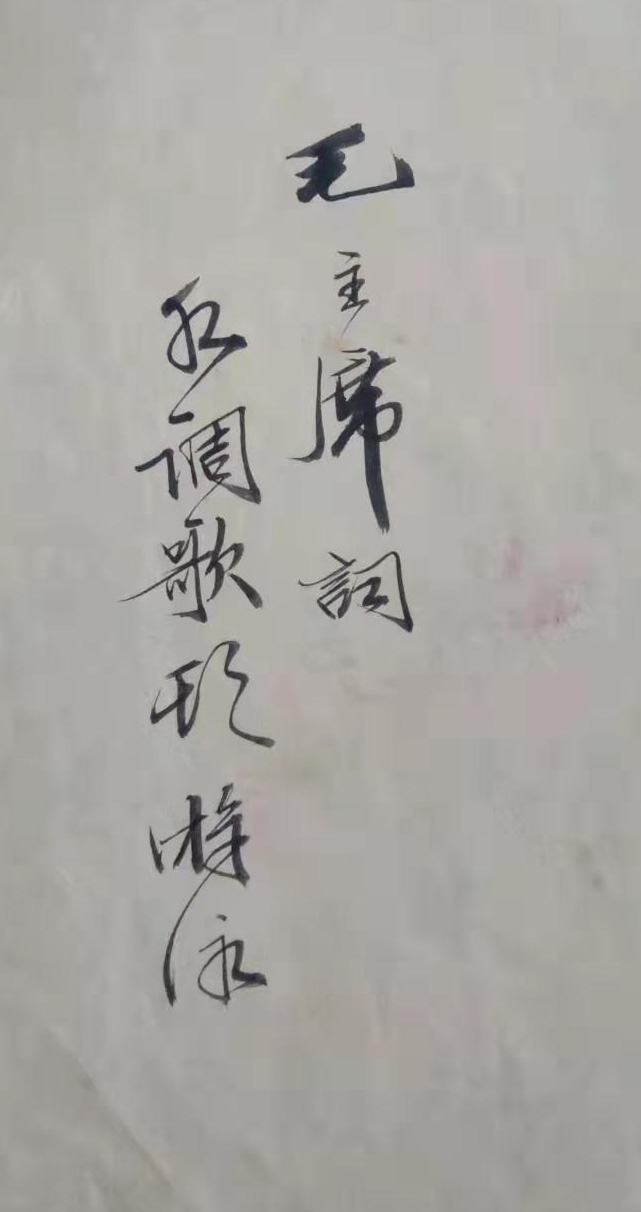 毛主席詞
水调歌头游泳